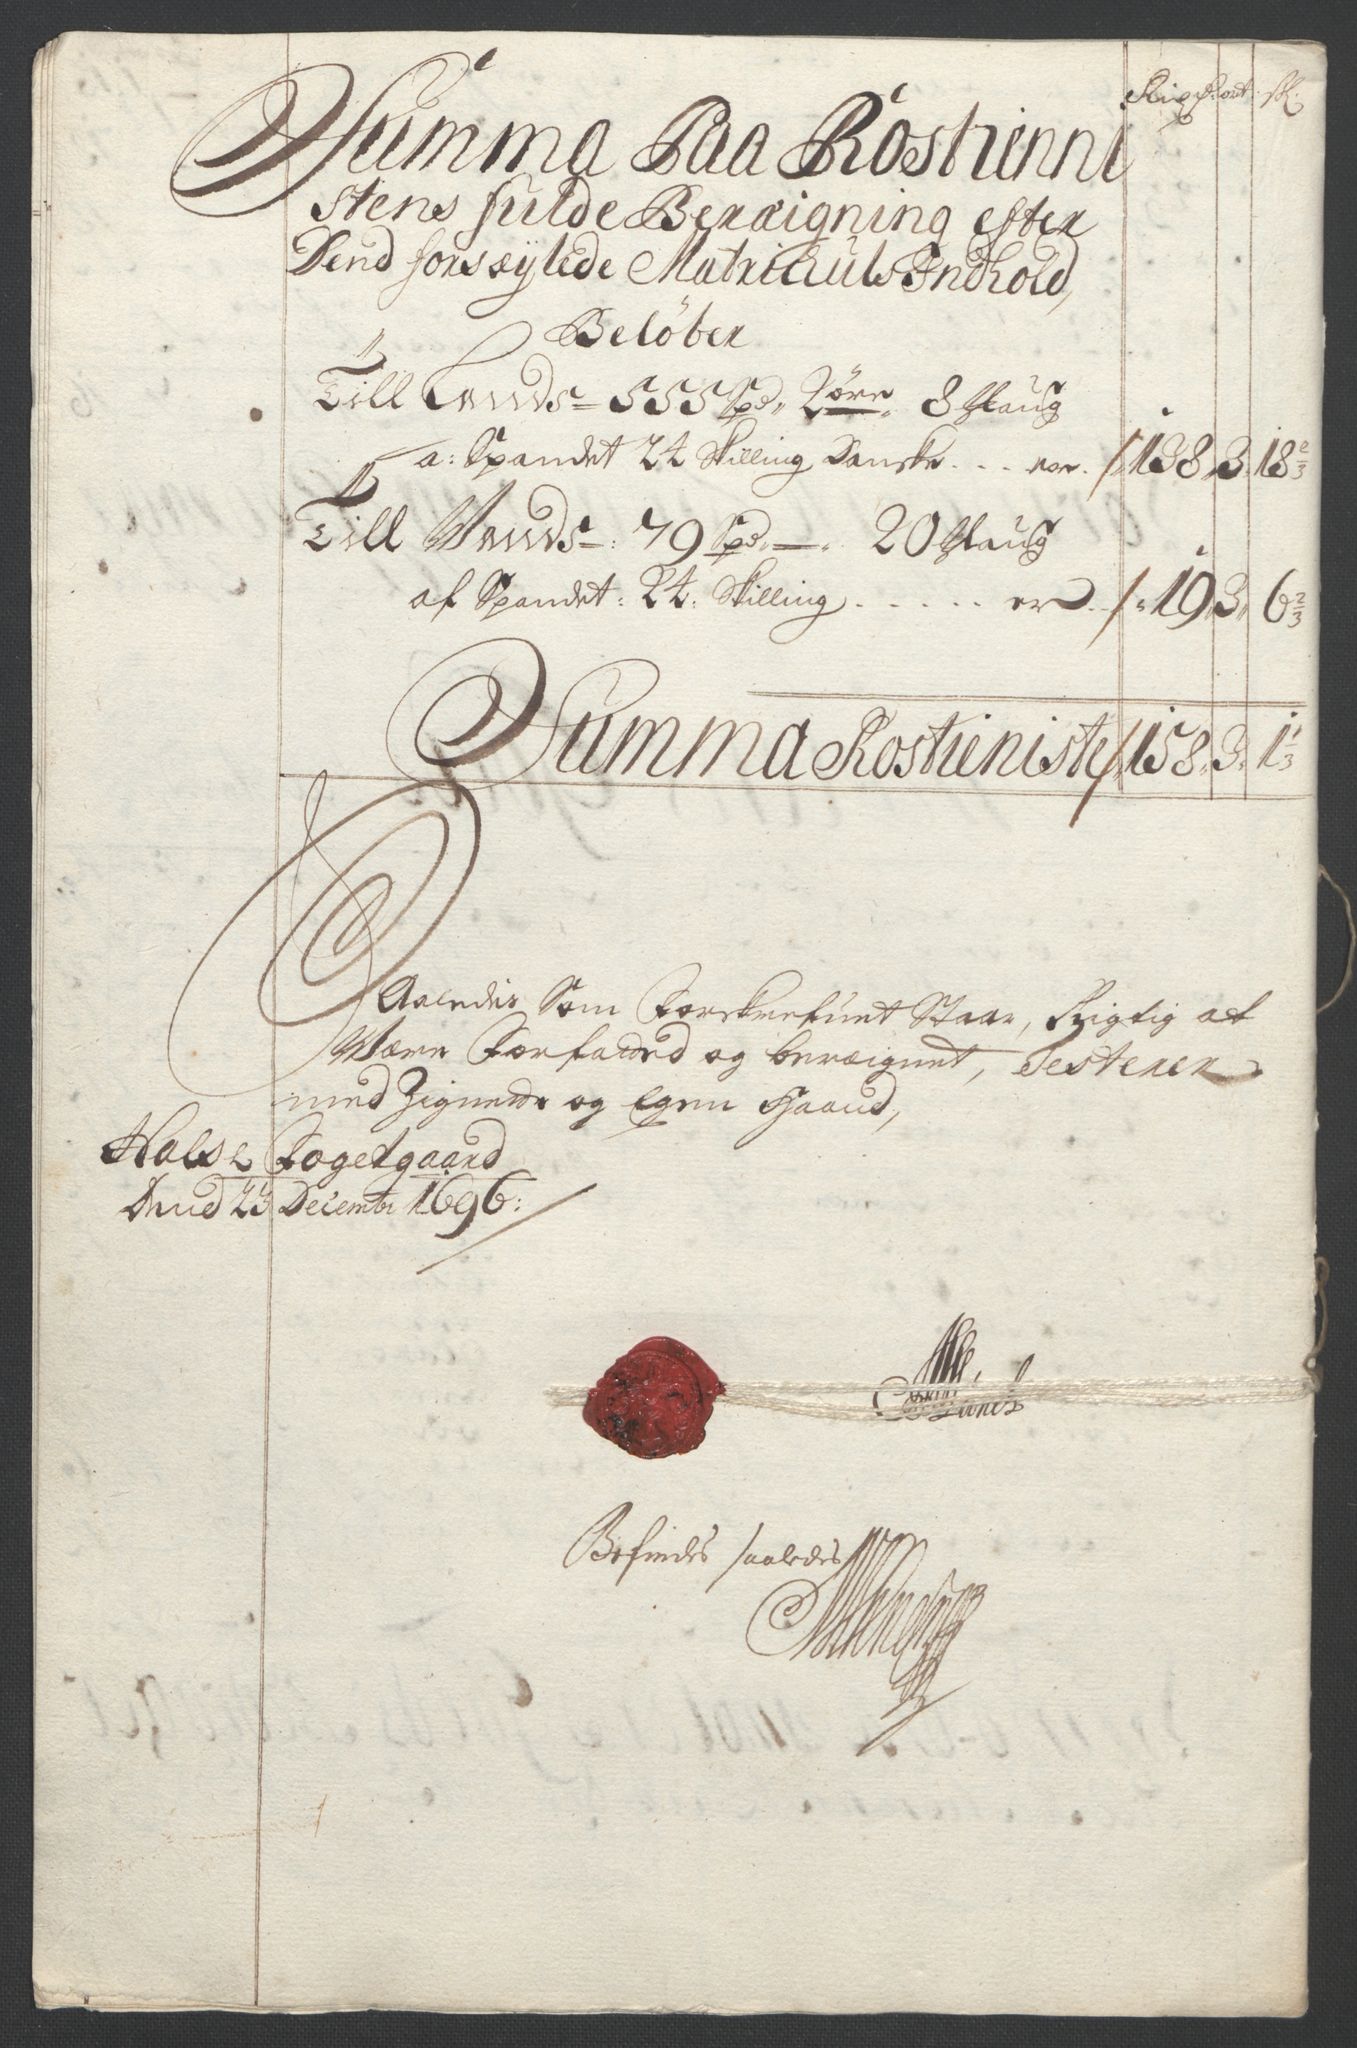 Summa Paa Rostienni
stens fulde Beræigning efter
Dend forseylede Matriculs Indhold,
Beløber
Till Lands= 555 Spd„ 2 øre„ 8 Marg
a: Spandet 24 Skilling Danske . . . 138„ 3„ 18 2/3
Till Vands=: 79 Spd„ — „ 20 Marg
af Spandet: 24: Skilling . . . . . er . . 19„ 3„ 6 2/3
Summa Rostieniste 158„ 3„ 1 1/3
Saaledis Som Forskrefuet Staar, Rigtig at
Være Forfatted og beræignet, Testerer
med Zignette og Egen Haand,
Halse Fogetgaard
Dend 23 Decembr 1696:
Befindes saaledes